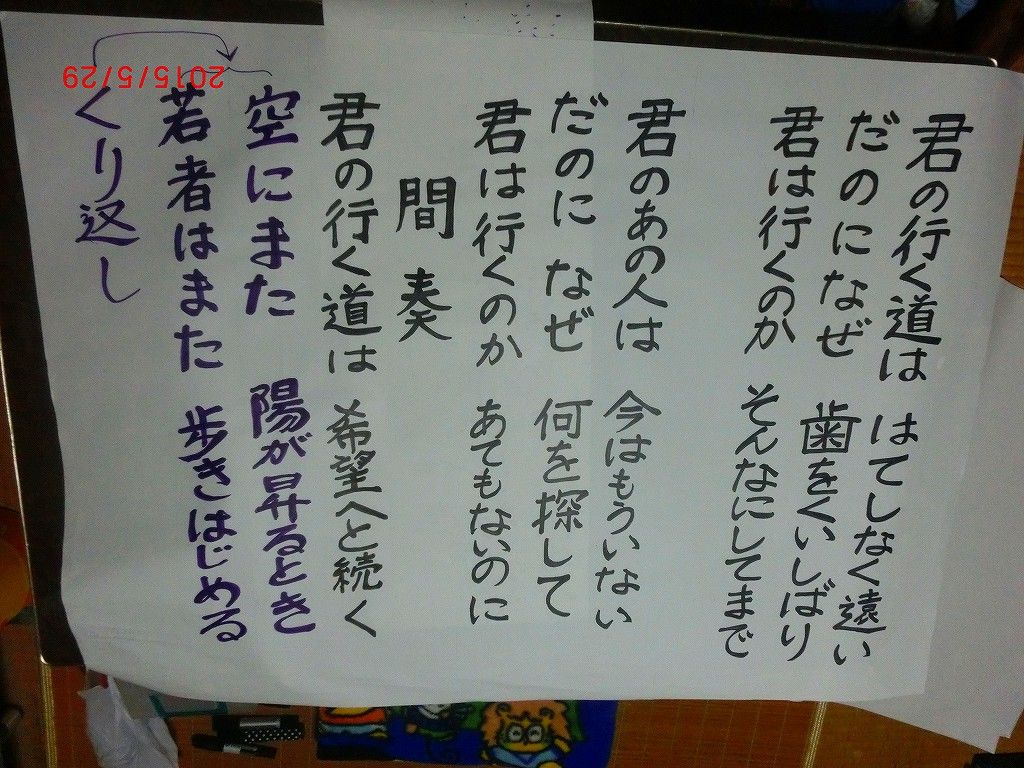 君の行く道は はてしなく遠い
だのになぜ 歯をくいしばり
君は行くのか そんなにしてまで
君のあの人は 今はもういない
だのに なぜ 何を探して
君は行くのか あてもないのに
間奏
君の行く道は 希望へと続く
空にまた 陽が昇るとき
若者はまた 歩きはじめる
くり返し
2015/5/29